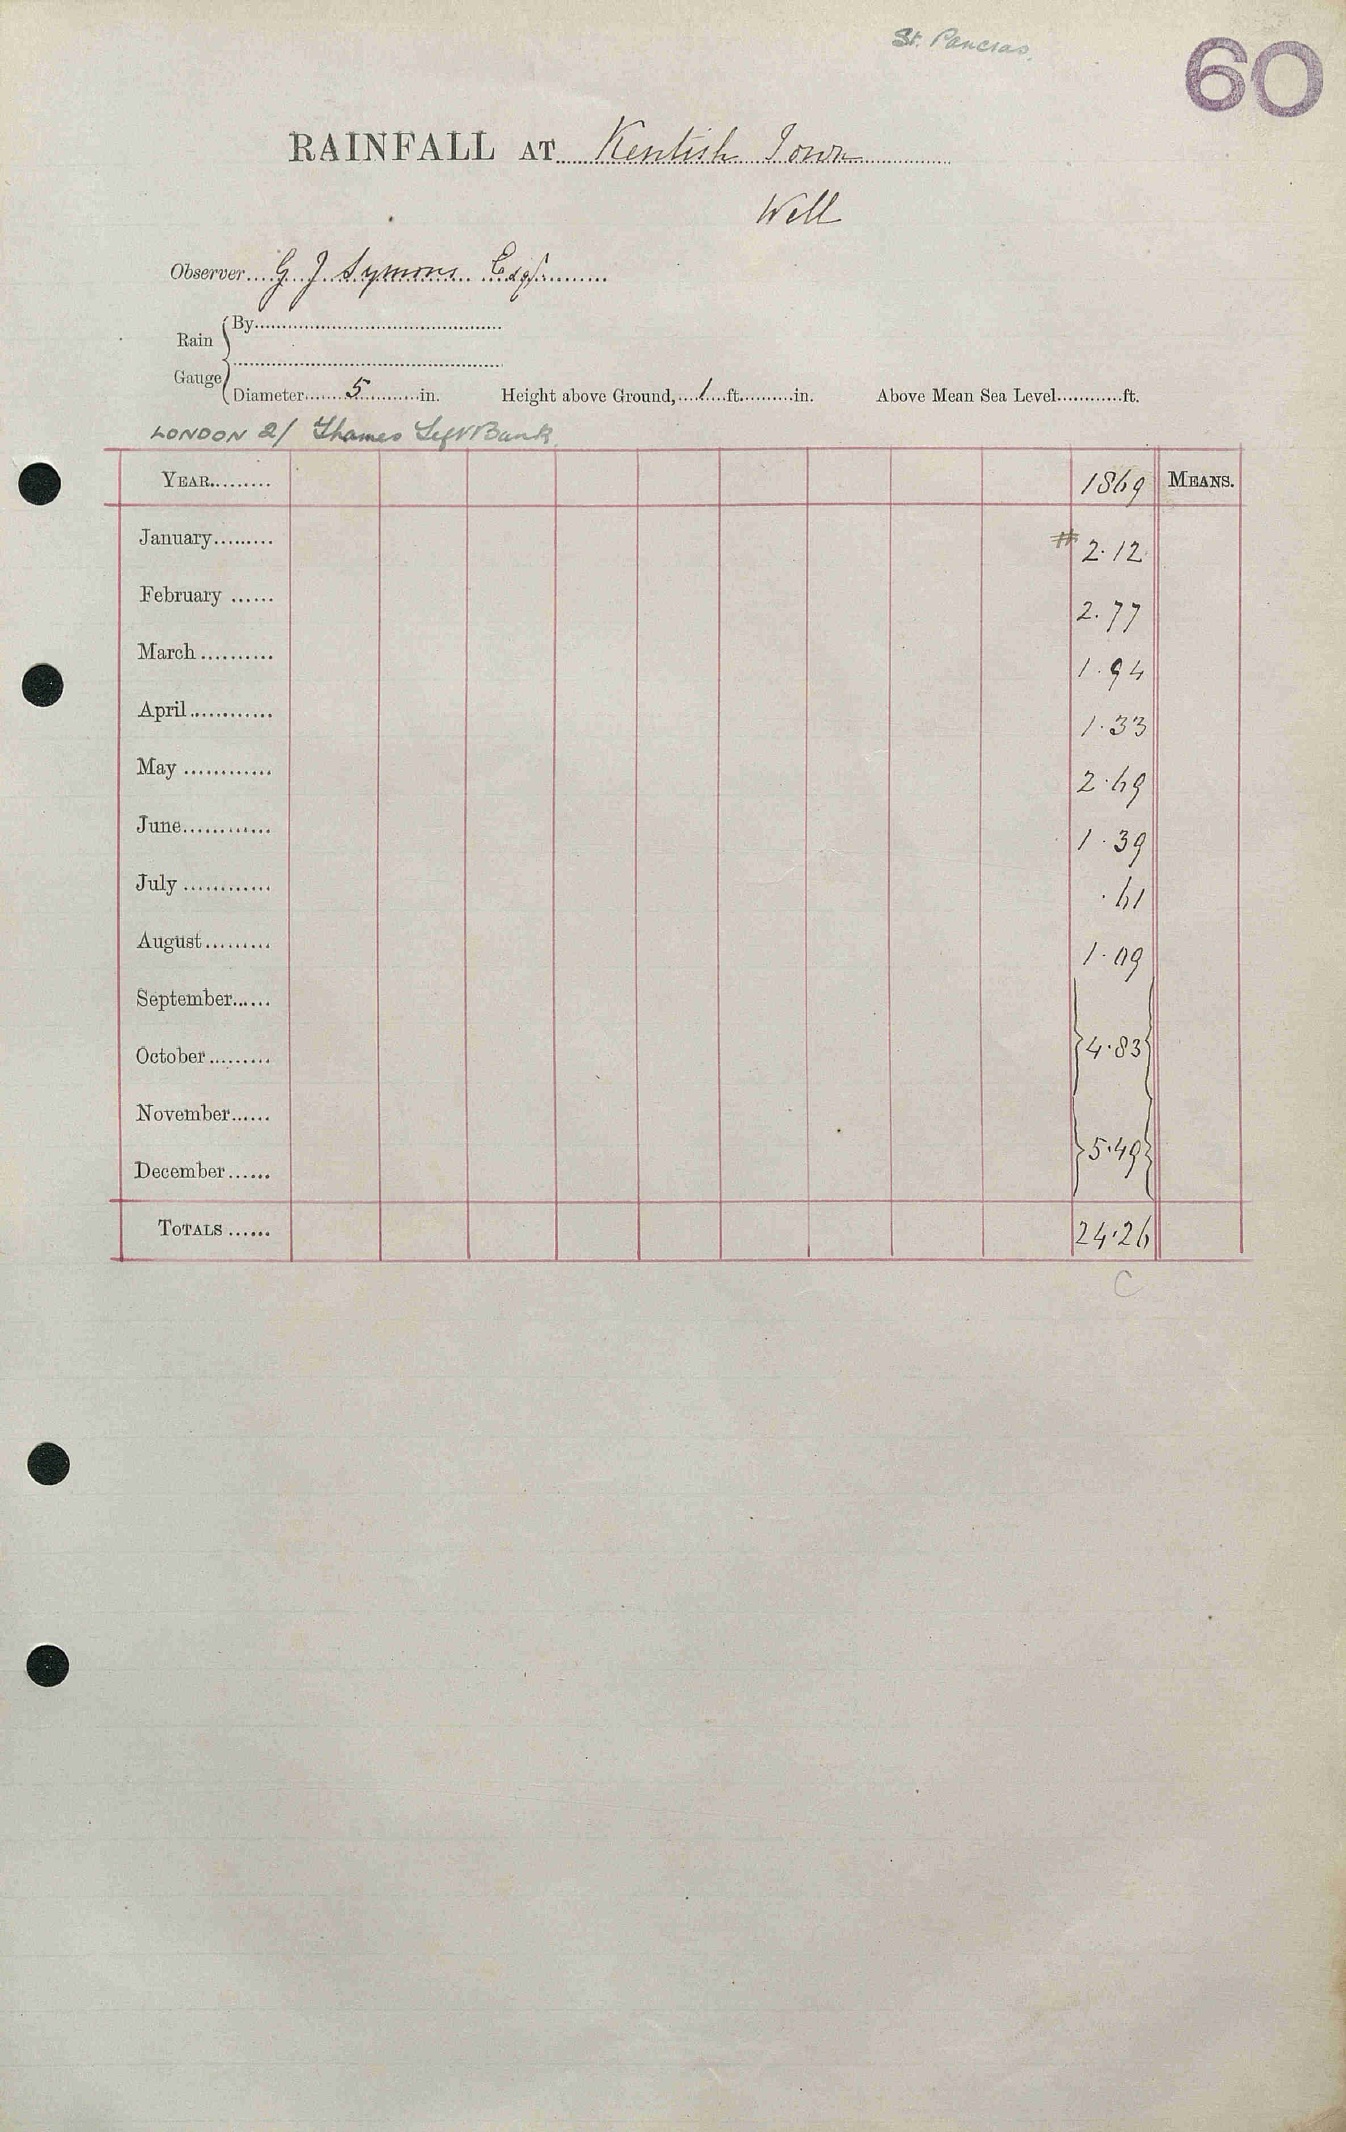 St. Pancras.
60
RAINFALL AT Kentish Town
Well
Observer G J Symons Esqr.
Rain Gauge { By
Diameter 5 in. Height above Ground, 1 ft. in. Above Mean Sea Level ft.
LONDON 2/ Thames Left Bank
YEAR 1869 MEANS.
January # 2.12
February 2.77
March 1.94
April 1.33
May 2.69
June 1.39
July .61
August 1.09
September
October } 4.83 {
November
December } 5.49 {
TOTALS 24.26
C